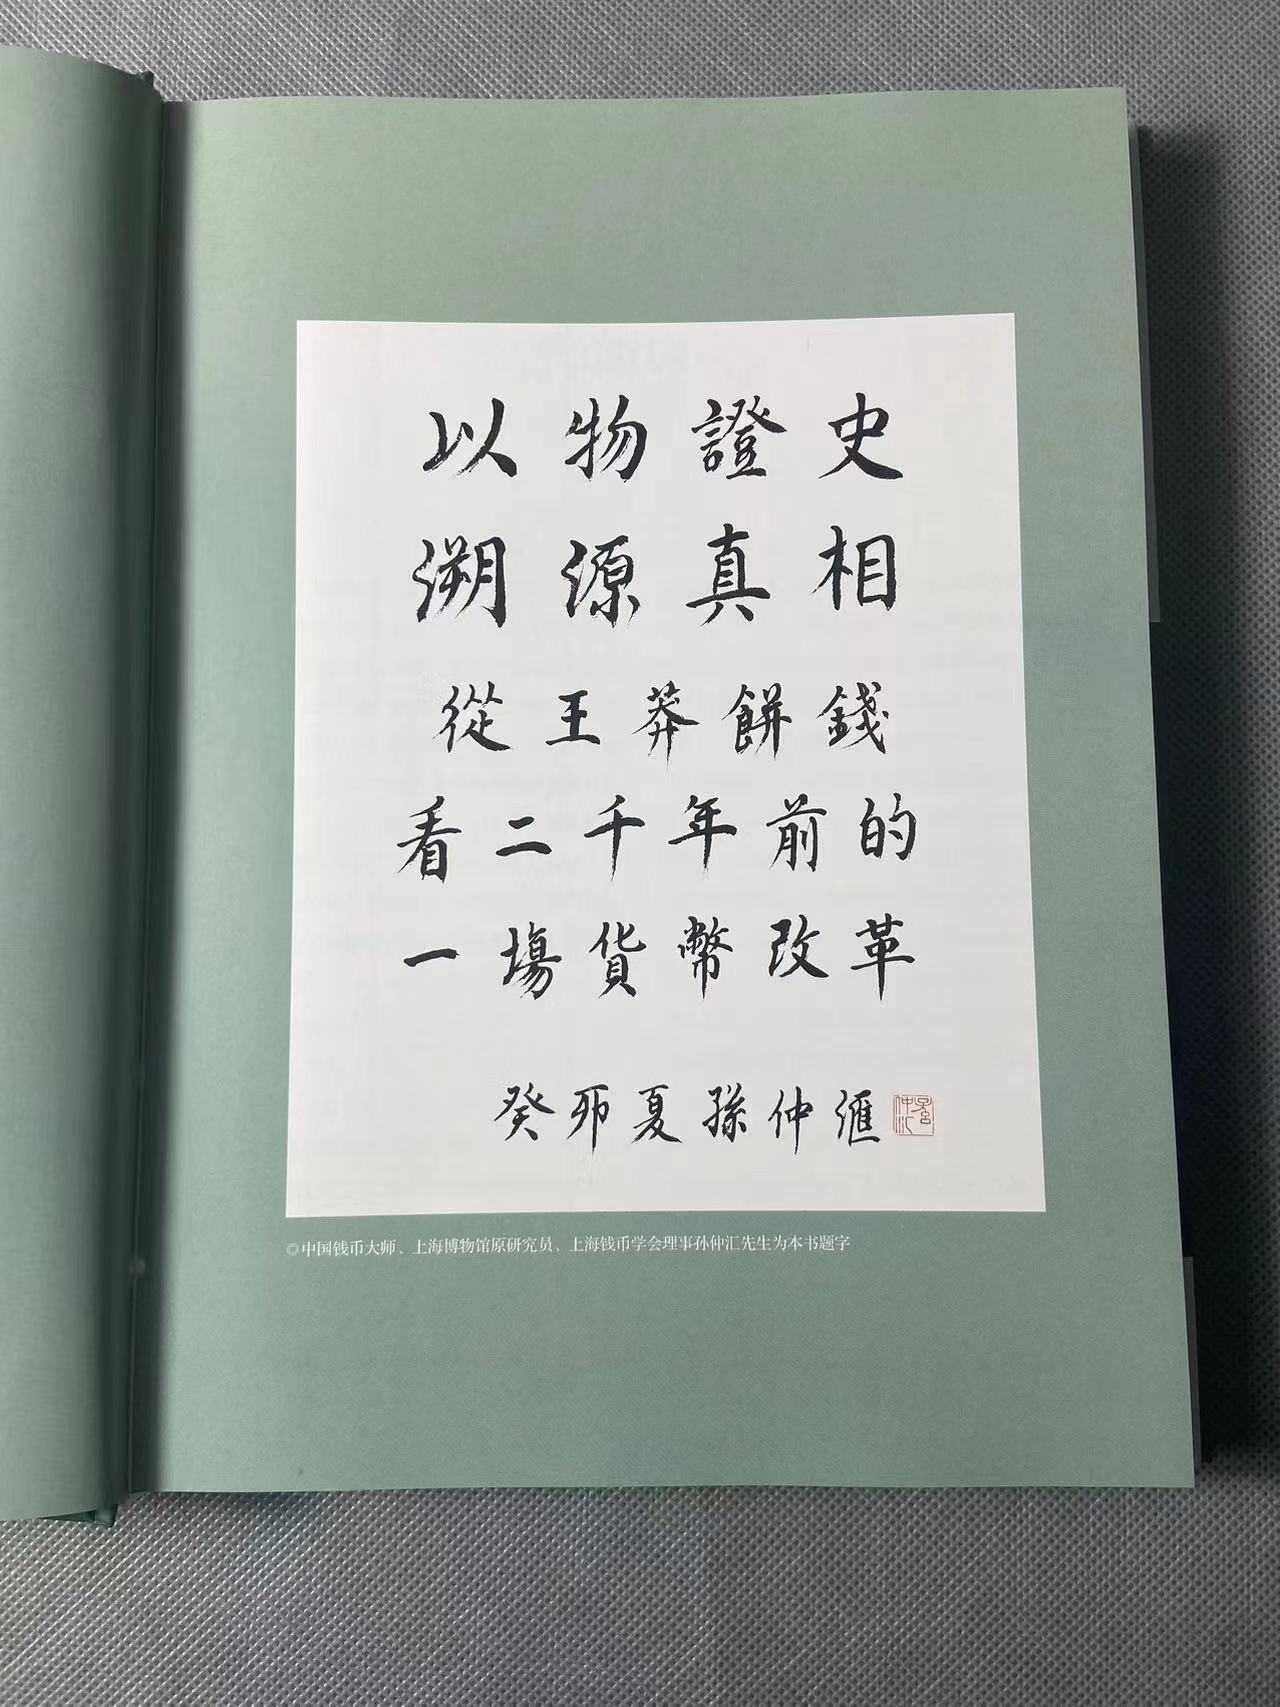 以物證史
溯源真相
從王莽餅錢
看二千年前的
一場貨幣改革
癸卯夏孫仲匯
◎中国钱币大师、上海博物馆原研究员、上海钱币学会理事孙仲汇先生为本书题字